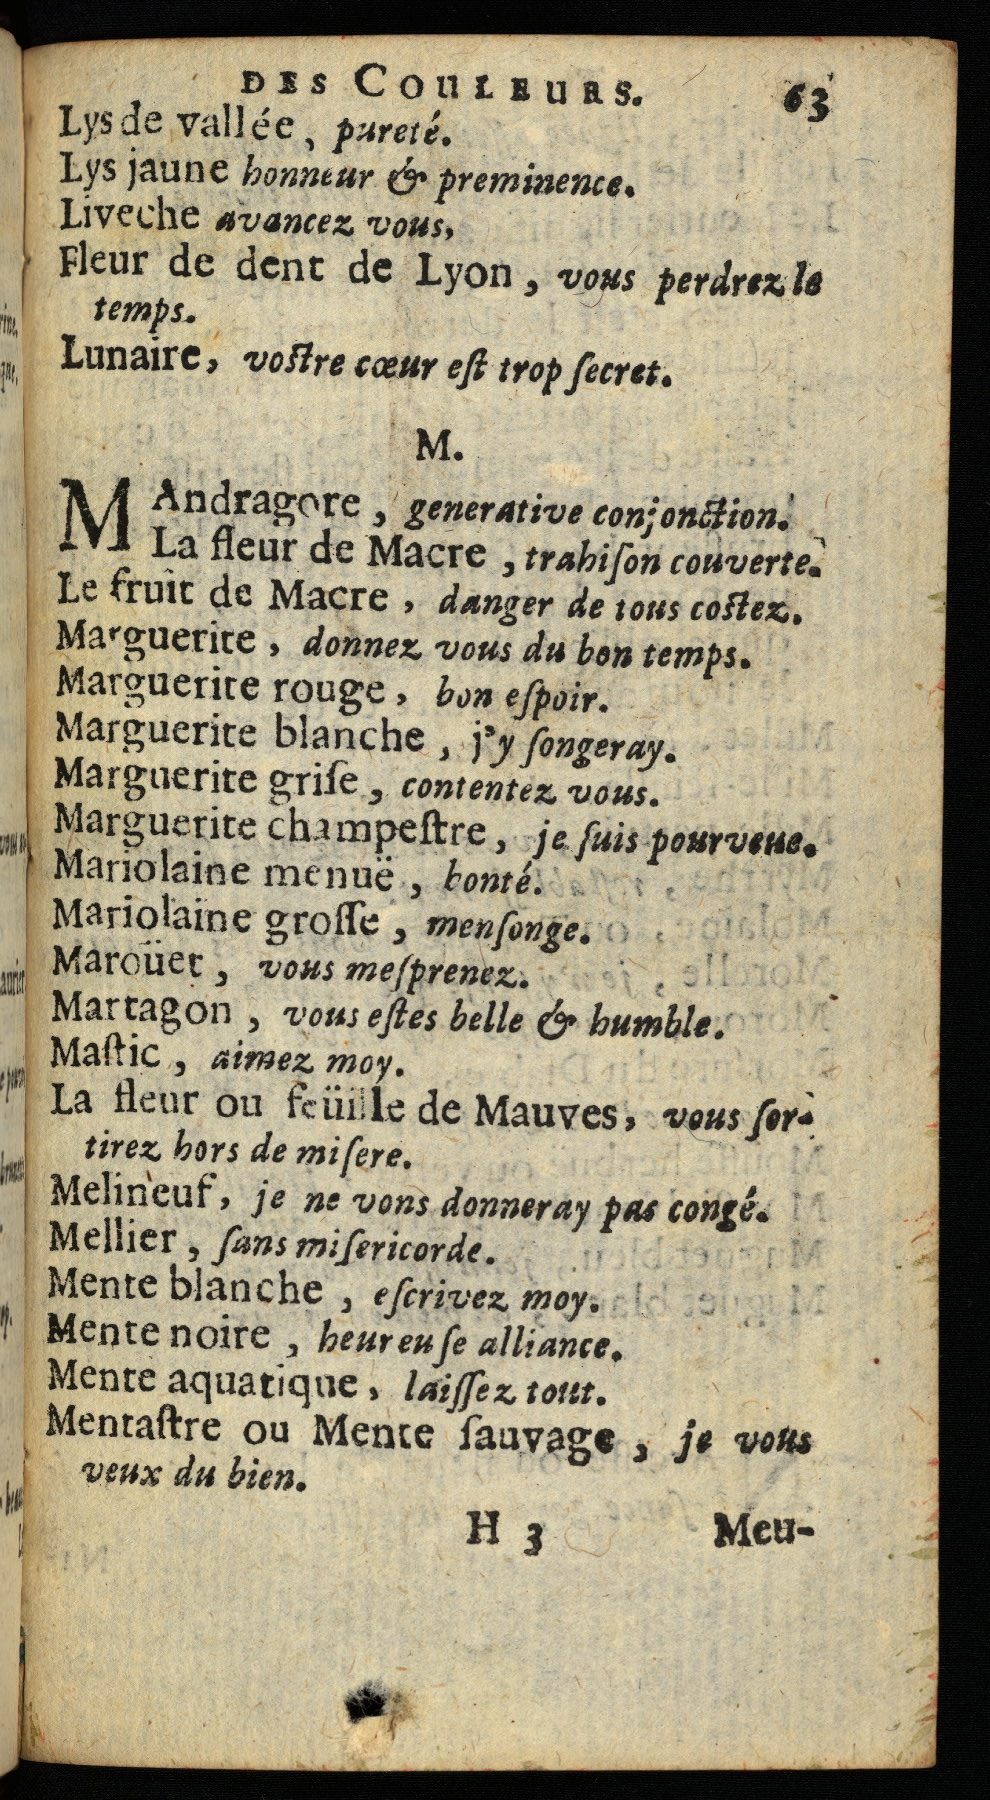 DES COULEURS. 63
Lys de vallée, pureté.
Lys jaune honneur & preminence.
Liveche avancez vous,
Fleur de dent de Lyon, vous perdrez le
temps.
Lunaire, vostre cœur eſt trop ſecret.
M.
MAndragore, generative conjonction.
La fleur de Macre, trahiſon couverte.
Le fruit de Macre, danger de tous costez.
Marguerite, donnez vous du bon temps.
Marguerite rouge, bon eſpoir.
Marguerite blanche, j'y ſongeray.
Marguerite griſe, contentez vous.
Marguerite champeſtre, je ſuis pourveue.
Mariolaine menuë, bonté.
Mariolaine groſſe, menſonge.
Maroüet, vous meſprenez.
Martagon, vous eſtes belle & humble.
Maſtic, aimez moy.
La fleur ou feüille de Mauves, vous ſor-
tirez hors de miſere.
Melineuf, je ne vons donneray pas congé.
Mellier, ſans miſericorde.
Mente blanche, eſcrivez moy.
Mente noire, heureuſe alliance.
Mente aquatique, laiſſez tout.
Mentaſtre ou Mente ſauvage, je vous
veux du bien.
H 3 Meu-